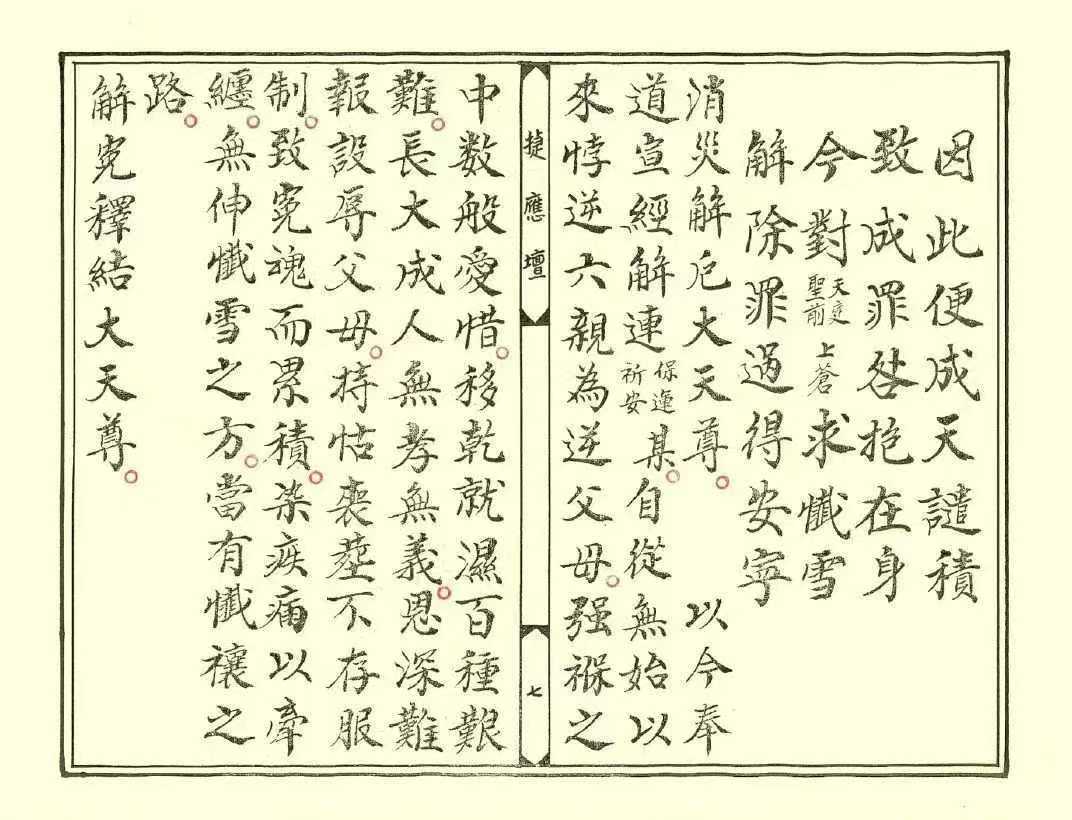 因此便成天譴積
致成罪咎抱在身
今對天庭聖前上蒼求懺雪
解除罪過得安寧
消災解厄大天尊 以今奉
道宣經解連保運祈安某自從無始以
來悖逆六親為逆父母強褓之
捷應壇
七
中数般愛惜移乾就濕百種艱
難長大成人無孝無義恩深難
報設辱父母持怙喪塟不存服
制致寃魂而累積染疾痛以牽
纒無伸懺雪之方當有懺禳之
路
解寃釋結大天尊